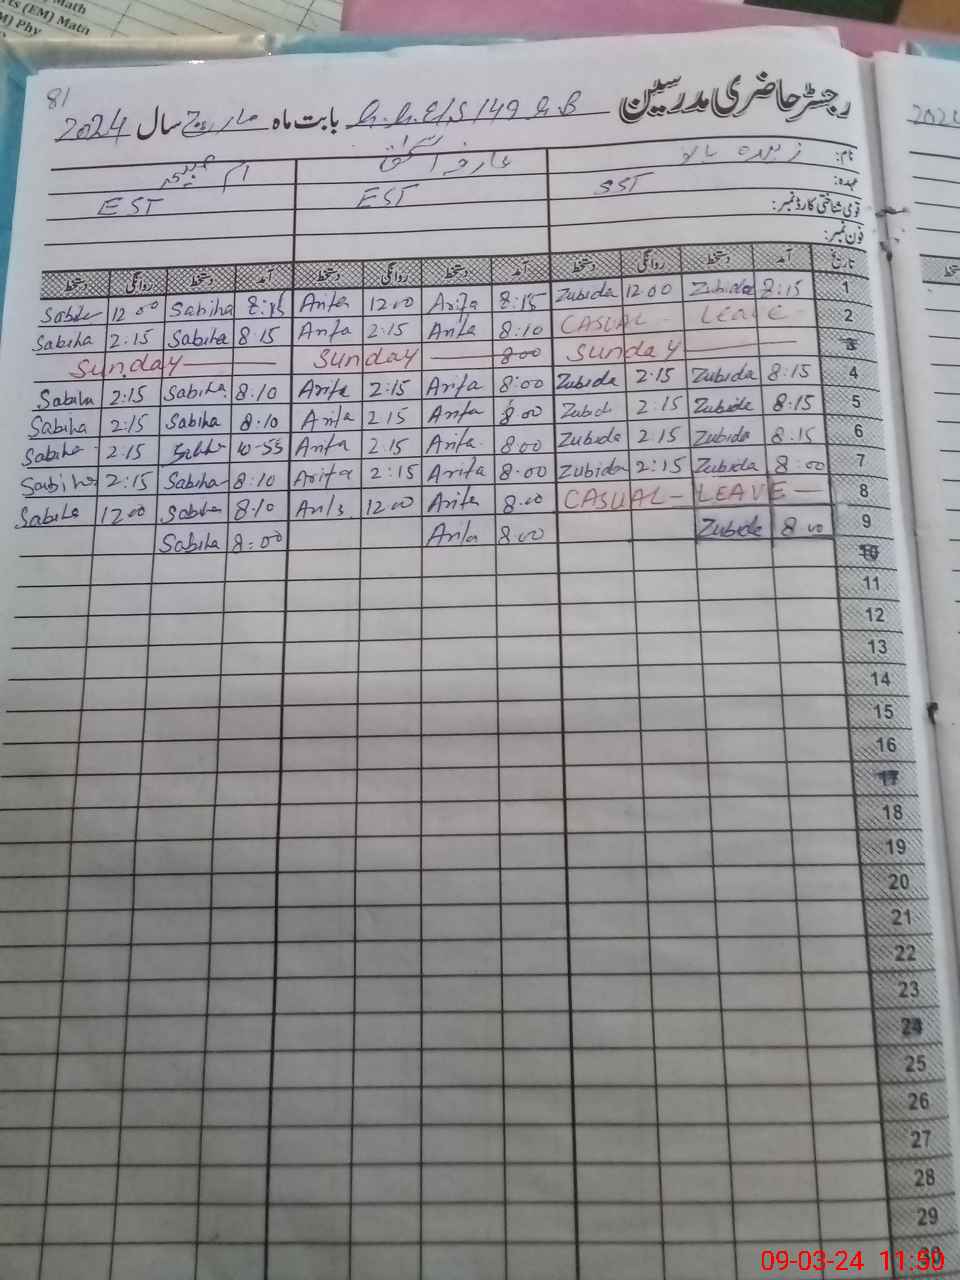 Math
(EM) Math
M) Phy
81
رجسٹر حاضری مدرسین G.G.E/S/149 G.B بابت ماہ مارچ سال 2024
2024
نام: زبیدہ عارفہ ام صبیحہ
عہدہ: SST EST EST
قومی شناختی کارڈ نمبر:
فون نمبر:
تاریخ آمد دستخط روانگی دستخط آمد دستخط روانگی دستخط آمد دستخط روانگی دستخط
1 8:15 Zubida 12 00 Zubida 8:15 Arifa 12 00 Arifa 8:15 Sabiha 12 00
2 CASUAL - LEAVE - 8:10 Arifa 2:15 Arifa 8 15 Sabiha 2:15 Sabiha
3 Sunday 8 00 Sunday Sunday
4 8:15 Zubida 2:15 Zubida 8:00 Arifa 2:15 Arifa 8:10 Sabiha 2:15 Sabiha
5 8:15 Zubida 2:15 8 00 Arifa 2 15 Arifa 8:10 Sabiha 2:15 Sabiha
6 8:15 Zubida 2 15 Zubida 8 00 Arifa 2 15 Arifa 10-55 2 15 Sabiha
7 8:00 Zubida 2:15 Zubida 8:00 Arifa 2:15 Arifa 8:10 Sabiha 2:15 Sabiha
8 CASUAL - LEAVE - 8:00 Arifa 12 00 8:10 Sabiha 12 00 Sabiha
9 8 00 Zubida 8 00 Arifa 8:00 Sabiha
10
11
12
13
14
15
16
17
18
19
20
21
22
23
24
25
26
27
28
29
30
09-03-24 11:50